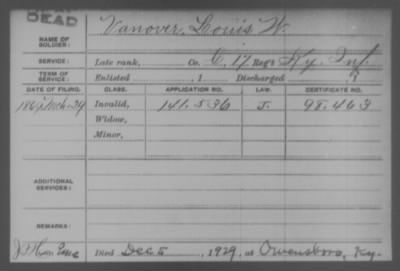 DEAD
NAME OF SOLDIER: Vanover, Louis W.
SERVICE: Late rank, Co. C, 17 Reg't Ky. Inf.
TERM OF SERVICE: Enlisted , 1 Discharged , 1
DATE OF FILING. CLASS. APPLICATION NO. LAW. CERTIFICATE NO.
Invalid, 141.536 J. 98.463
Widow,
Minor,
ADDITIONAL SERVICES:
REMARKS:
Died Dec 5, 1929, at Owensboro, Ky.